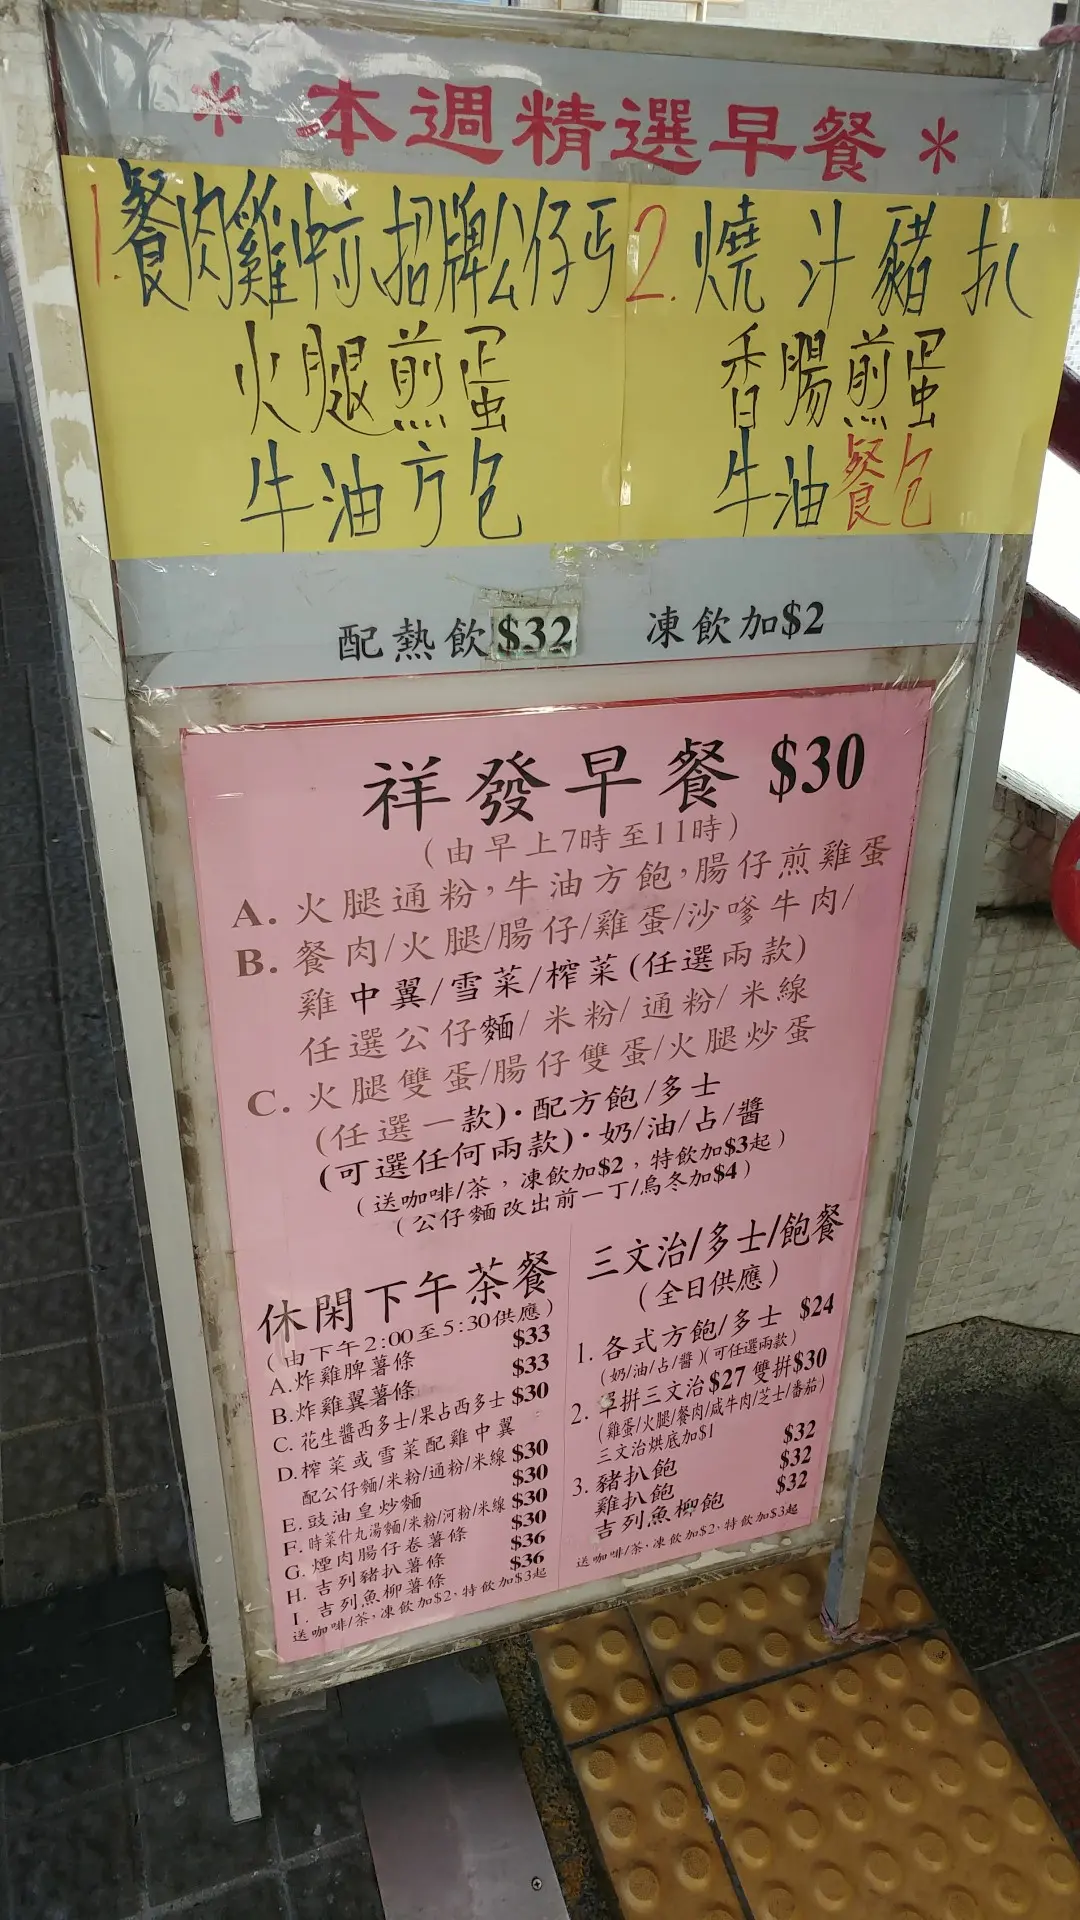 * 本週精選早餐 *
1.餐肉雞中亦招牌公仔丐
火腿煎蛋
牛油方包
2.燒汁豬扒
香腸煎蛋
牛油餐包
配熱飲$32 凍飲加$2
祥發早餐 $30
(由早上7時至11時)
A. 火腿通粉,牛油方飽,腸仔煎雞蛋
B. 餐肉/火腿/腸仔/雞蛋/沙嗲牛肉/
雞中翼/雪菜/榨菜(任選兩款)
任選公仔麵/米粉/通粉/米線
C. 火腿雙蛋/腸仔雙蛋/火腿炒蛋
(任選一款)·配方飽/多士
(可選任何兩款)·奶/油/占/醬
(送咖啡/茶,凍飲加$2,特飲加$3起)
(公仔麵改出前一丁/烏冬加$4)
休閑下午茶餐
(由下午2:00至5:30供應)
A.炸雞脾薯條 $33
B.炸雞翼薯條 $33
C.花生醬西多士/果占西多士 $30
D.榨菜或雪菜配雞中翼
配公仔麵/米粉/通粉/米線 $30
E.豉油皇炒麵 $30
F.時菜什丸湯麵/米粉/河粉/米線 $30
G.煙肉腸仔卷薯條 $30
H.吉列豬扒薯條 $36
I.吉列魚柳薯條 $36
送咖啡/茶,凍飲加$2,特飲加$3起
三文治/多士/飽餐
(全日供應)
1.各式方飽/多士 $24
(奶/油/占/醬)(可任選兩款)
2.單拼三文治$27 雙拼$30
(雞蛋/火腿/餐肉/咸牛肉/芝士/番茄)
三文治烘底加$1
3.豬扒飽 $32
雞扒飽 $32
吉列魚柳飽 $32
送咖啡/茶,凍飲加$2,特飲加$3起